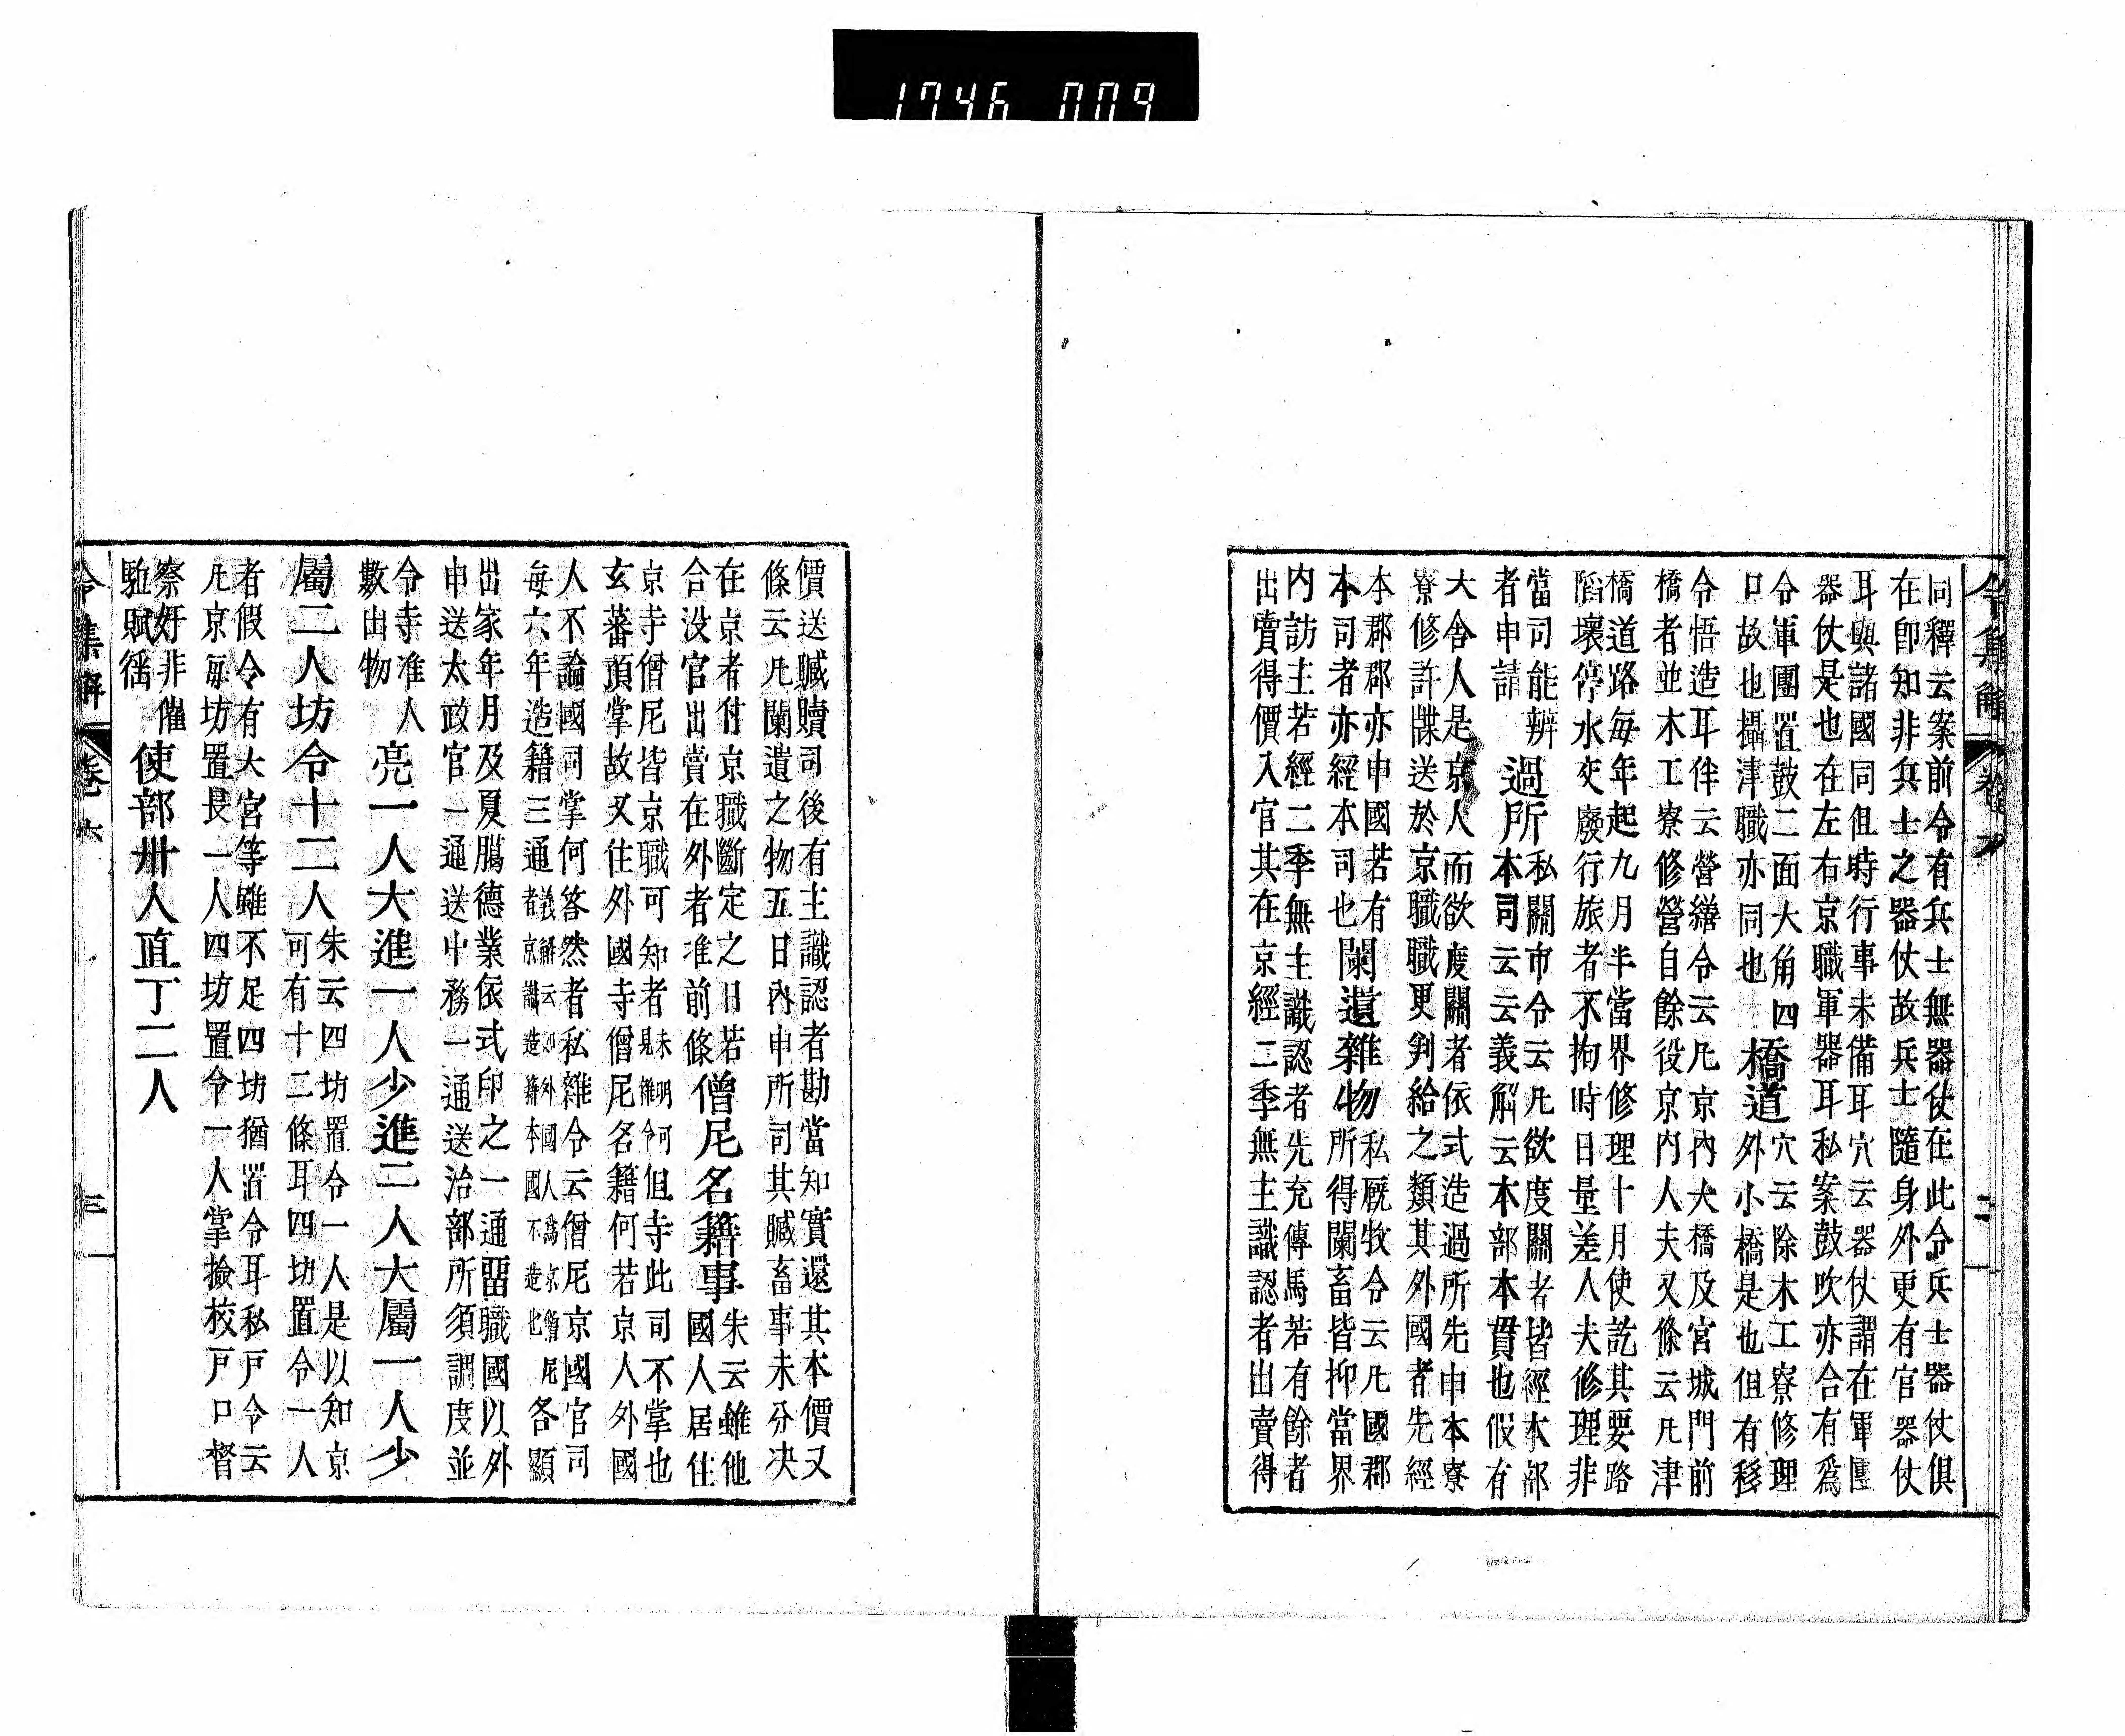 1746 009
令集解 卷六 二
同釋云案前令有兵士無器仗在此令兵士器仗俱
在卽知非兵士之器仗故兵士隨身外更有官器仗
耳與諸國同但時行事未備耳穴云器仗謂在軍團
器仗是也在左右京職軍器耳私案鼓吹亦合有爲
令軍團置鼓二面大角四
口故也攝津職亦同也
橋道
穴云除木工寮修理
外小橋是也但有移
令悟造耳伴云營繕令云凡京內大橋及宮城門前
橋者並木工寮修營自餘役京內人夫又條云凡津
橋道路每年起九月半當界修理十月使訖其要路
陷壞停水交廢行旅者不拘時日量差人夫修理非
當司能辨
者申請
過所
私關市令云凡欲度關者皆經本部
本司云云義解云本部本貫也假有
大舍人是京人而欲度關者依式造過所先申本寮
寮修許牒送於京職職更判給之類其外國者先經
本郡郡亦申國若有
本司者亦經本司也
闌遺雜物
私厩牧令云凡國郡
所得闌畜皆抑當界
內訪主若經二季無主識認者先充傳馬若有餘者
出賣得價入官其在京經二季無主識認者出賣得
價送贓贖司後有主識認者勘當知實還其本價又
條云凡闌遺之物五日內申所司其贓畜事未分決
在京者付京職斷定之日若
合沒官出賣在外者准前條
僧尼名籍事
朱云雖他
國人居住
京寺僧尼皆京職可知者
未明何
見雜令
但寺此司不掌也
玄蕃頂掌故又往外國寺僧尼名籍何若京人外國
人不論國司掌何答然者私雜令云僧尼京國官司
每六年造籍三通
義解云卽外國人爲京僧尼
者京職造籍本國不造也
各顯
出家年月及夏﨟德業依式印之一通留職國以外
申送太政官一通送中務一通送治部所須調度並
令寺准人
數出物
亮一人大進一人少進二人大屬一人少
屬二人坊令十二人
朱云四坊置令一人是以知京
可有十二條耳四坊置令一人
者假令有大宮等雖不足四坊猶置令耳私戶令云
凡京每坊置長一人四坊置令一人掌撿校戶口督
察奸非催
駈賦徭
使部卅人直丁二人
令集解 卷六 三